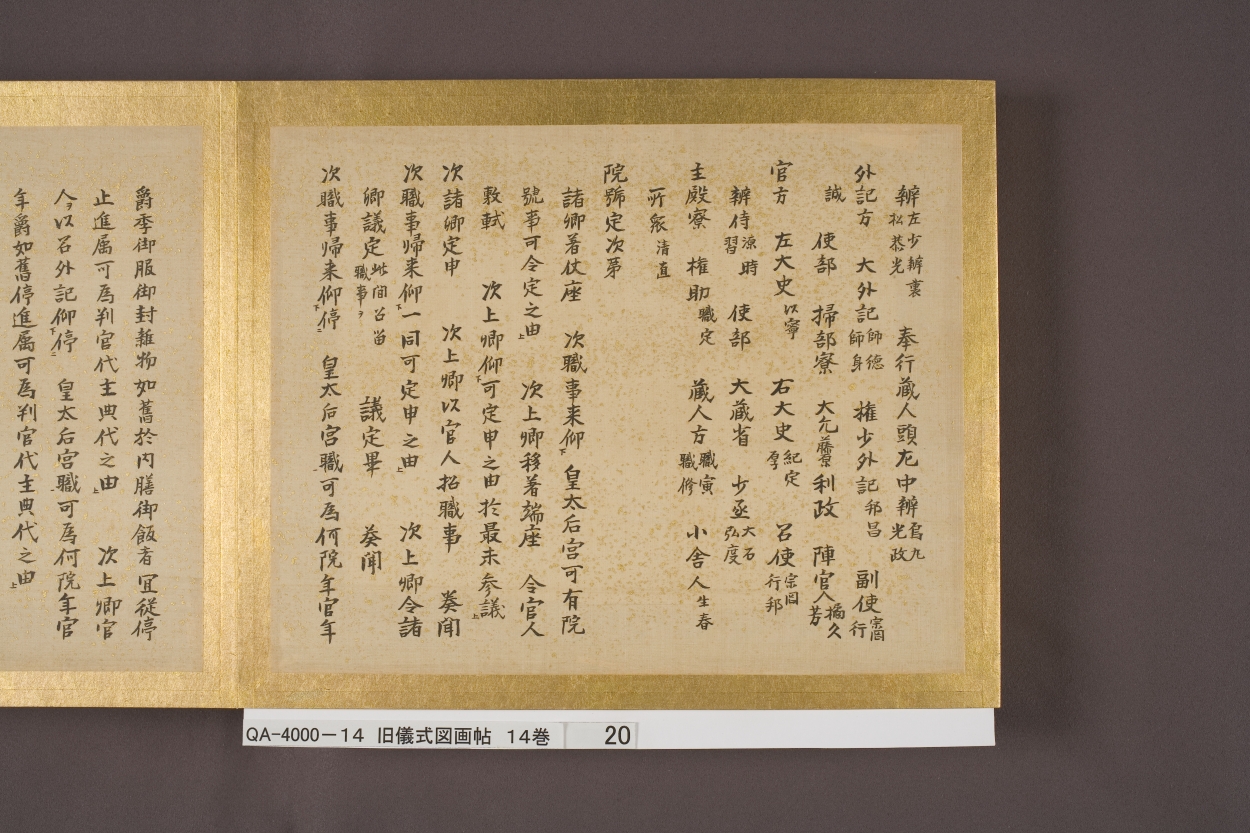 辨左少辨裏松恭光 奉行蔵人頭左中辨烏丸光政
外記方 大外記師徳師身 権少外記邦昌 副使宗岡行
誠 使部 掃部寮 大允藤原利政 陣官人橘久芳
官方 左大史以寧 右大史紀定厚 召使宗岡行邦
辨侍源時習 使部 大蔵省 少丞大石弘度
主殿寮 権助職定 蔵人方職寅職修 小舎人生春
所衆清直
院號定次第
諸卿着仗座 次職事来仰下 皇太后宮可有院
號事可令定之由上 次上卿移着端座 令官人
敷軾 次上卿仰下可定申之由於最末参議上
次諸卿定申 次上卿以官人招職事 奏聞
次職事帰来仰下一同可定申之由上 次上卿令諸
卿議定此間召留職事ヲ 議定畢 奏聞
次職事帰来仰下停二 皇太后宮職可為何院年官年
爵季御服御封雜物如舊於内膳御飯者宜従停
止進属可為判官代主典代之由上 次上卿官
人ヲ以召外記仰下停二 皇太后宮職一可為何院年官
年爵如舊停進属可為判官代主典代之由上
QA-4000-14 旧儀式図画帖 14巻 20